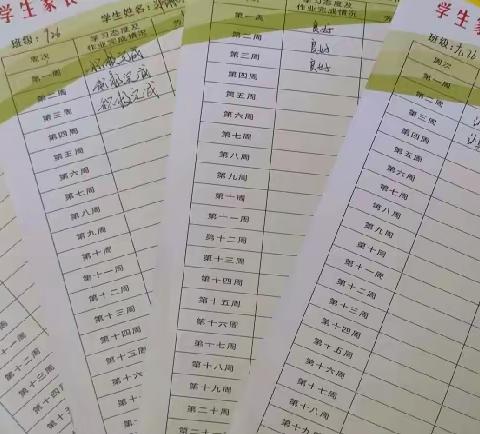 学生家长
班级: 726
学生姓名:
周次
学习态度及
作业完成情况
第一周
积极完成
第二周
积极完成
第三周
积极完成
第四周
第五周
第六周
第七周
第八周
第九周
第十周
第十一周
第十二周
第十三周
第十四周
第十五周
第十六
第十二周
第十三周
第十四
学习态度及
作业完成情况
第一周
良好
第二周
良好
第三周
良好
第四周
第五周
第六周
第七周
第八周
第九周
第一一周
第十二周
第十四周
第十五周
第十六周
第十七周
第十八周
第十九周
第二十周
学生家
班级:
周次
第一周
第二周
第三周
第四周
第五周
第六周
第七周
第八周
第九周
第十周
第十一周
第十二周
第十三周
第十四周
第十五周
第十六周
第十七周
第十八周
第十九